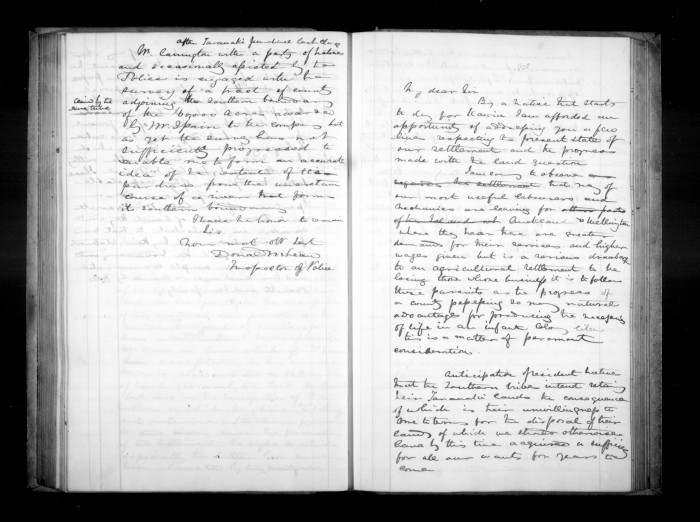 after Taranaki purchase
Mr. Carrington with a party of natives
and occasionally assisted by the
Police is engaged with the
survey of a tract of country
adjoining the Southern boundary
claimed by the
same tribe
of the 60,000 Acres awarded
by Mr Spain to the company but
as yet the survey has not
sufficiently progressed to
enable me to form an accurate
idea of the extent of the
purchase from the uncertain
course of a river that forms
its Southern boundary
I have the honor to remain
Sir
Your most obt Sert
Donald McLean
Inspector of Police
My dear Sir
By a native that starts
to day for Kawia I am afforded an
opportunity of addressing you a few
lines respecting the present state of
our settlement and the progress
made with the land question
I am sorry to observe
regards the settlement that many of
our most useful labourers and
mechanics are leaving for other parts
of the Island Auckland & Wellington
where they hear there are greater
demands for their services and higher
wages given but is a serious drawback
to an agricultural settlement to be
losing those whose business it is to follow
those pursuits as the progress of
a county possessing so many natural
advantages for producing the necessary
of life in an infant Colony
this is a matter of paramount
consideration.
Anticipation of resident natives
that the Southern tribes intent
their Taranaki lands the consequence
of which is their unwillingness to
come to terms for the disposal of their
lands of which we otherwise
have by this time acquired a sufficiency
for all our wants for years to
come